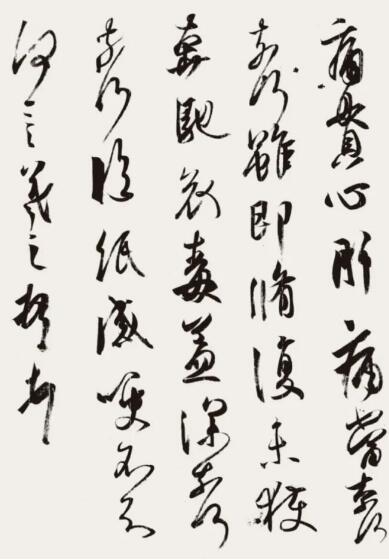 痛貫心肝痛當奈何
奈何雖即脩復未獲
奔馳哀毒益深奈何
奈何臨紙感哽不知
何言羲之頓首